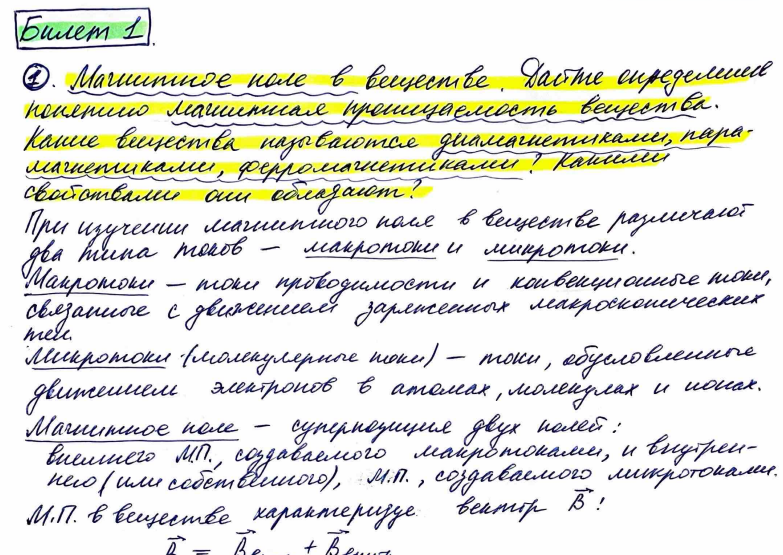 Билет 1.
①. Магнитное поле в веществе. Дайте определение
понятию магнитная проницаемость вещества.
Какие вещества называются диамагнетиками, пара-
магнетиками, ферромагнетиками? Какими
свойствами они обладают?
При изучении магнитного поля в веществе различают
два типа токов – макротоки и микротоки.
Макротоки – токи проводимости и конвекционные токи,
связанные с движением заряженных макроскопических
тел.
Микротоки (молекулярные токи) – токи, обусловленные
движением электронов в атомах, молекулах и ионах.
Магнитное поле – суперпозиция двух полей:
внешнего М.П., создаваемого макротоками, и внутрен-
него (или собственного), М.П., создаваемого микротоками.
М.П. в веществе характеризуе вектор B⃗!
= B⃗ + B⃗